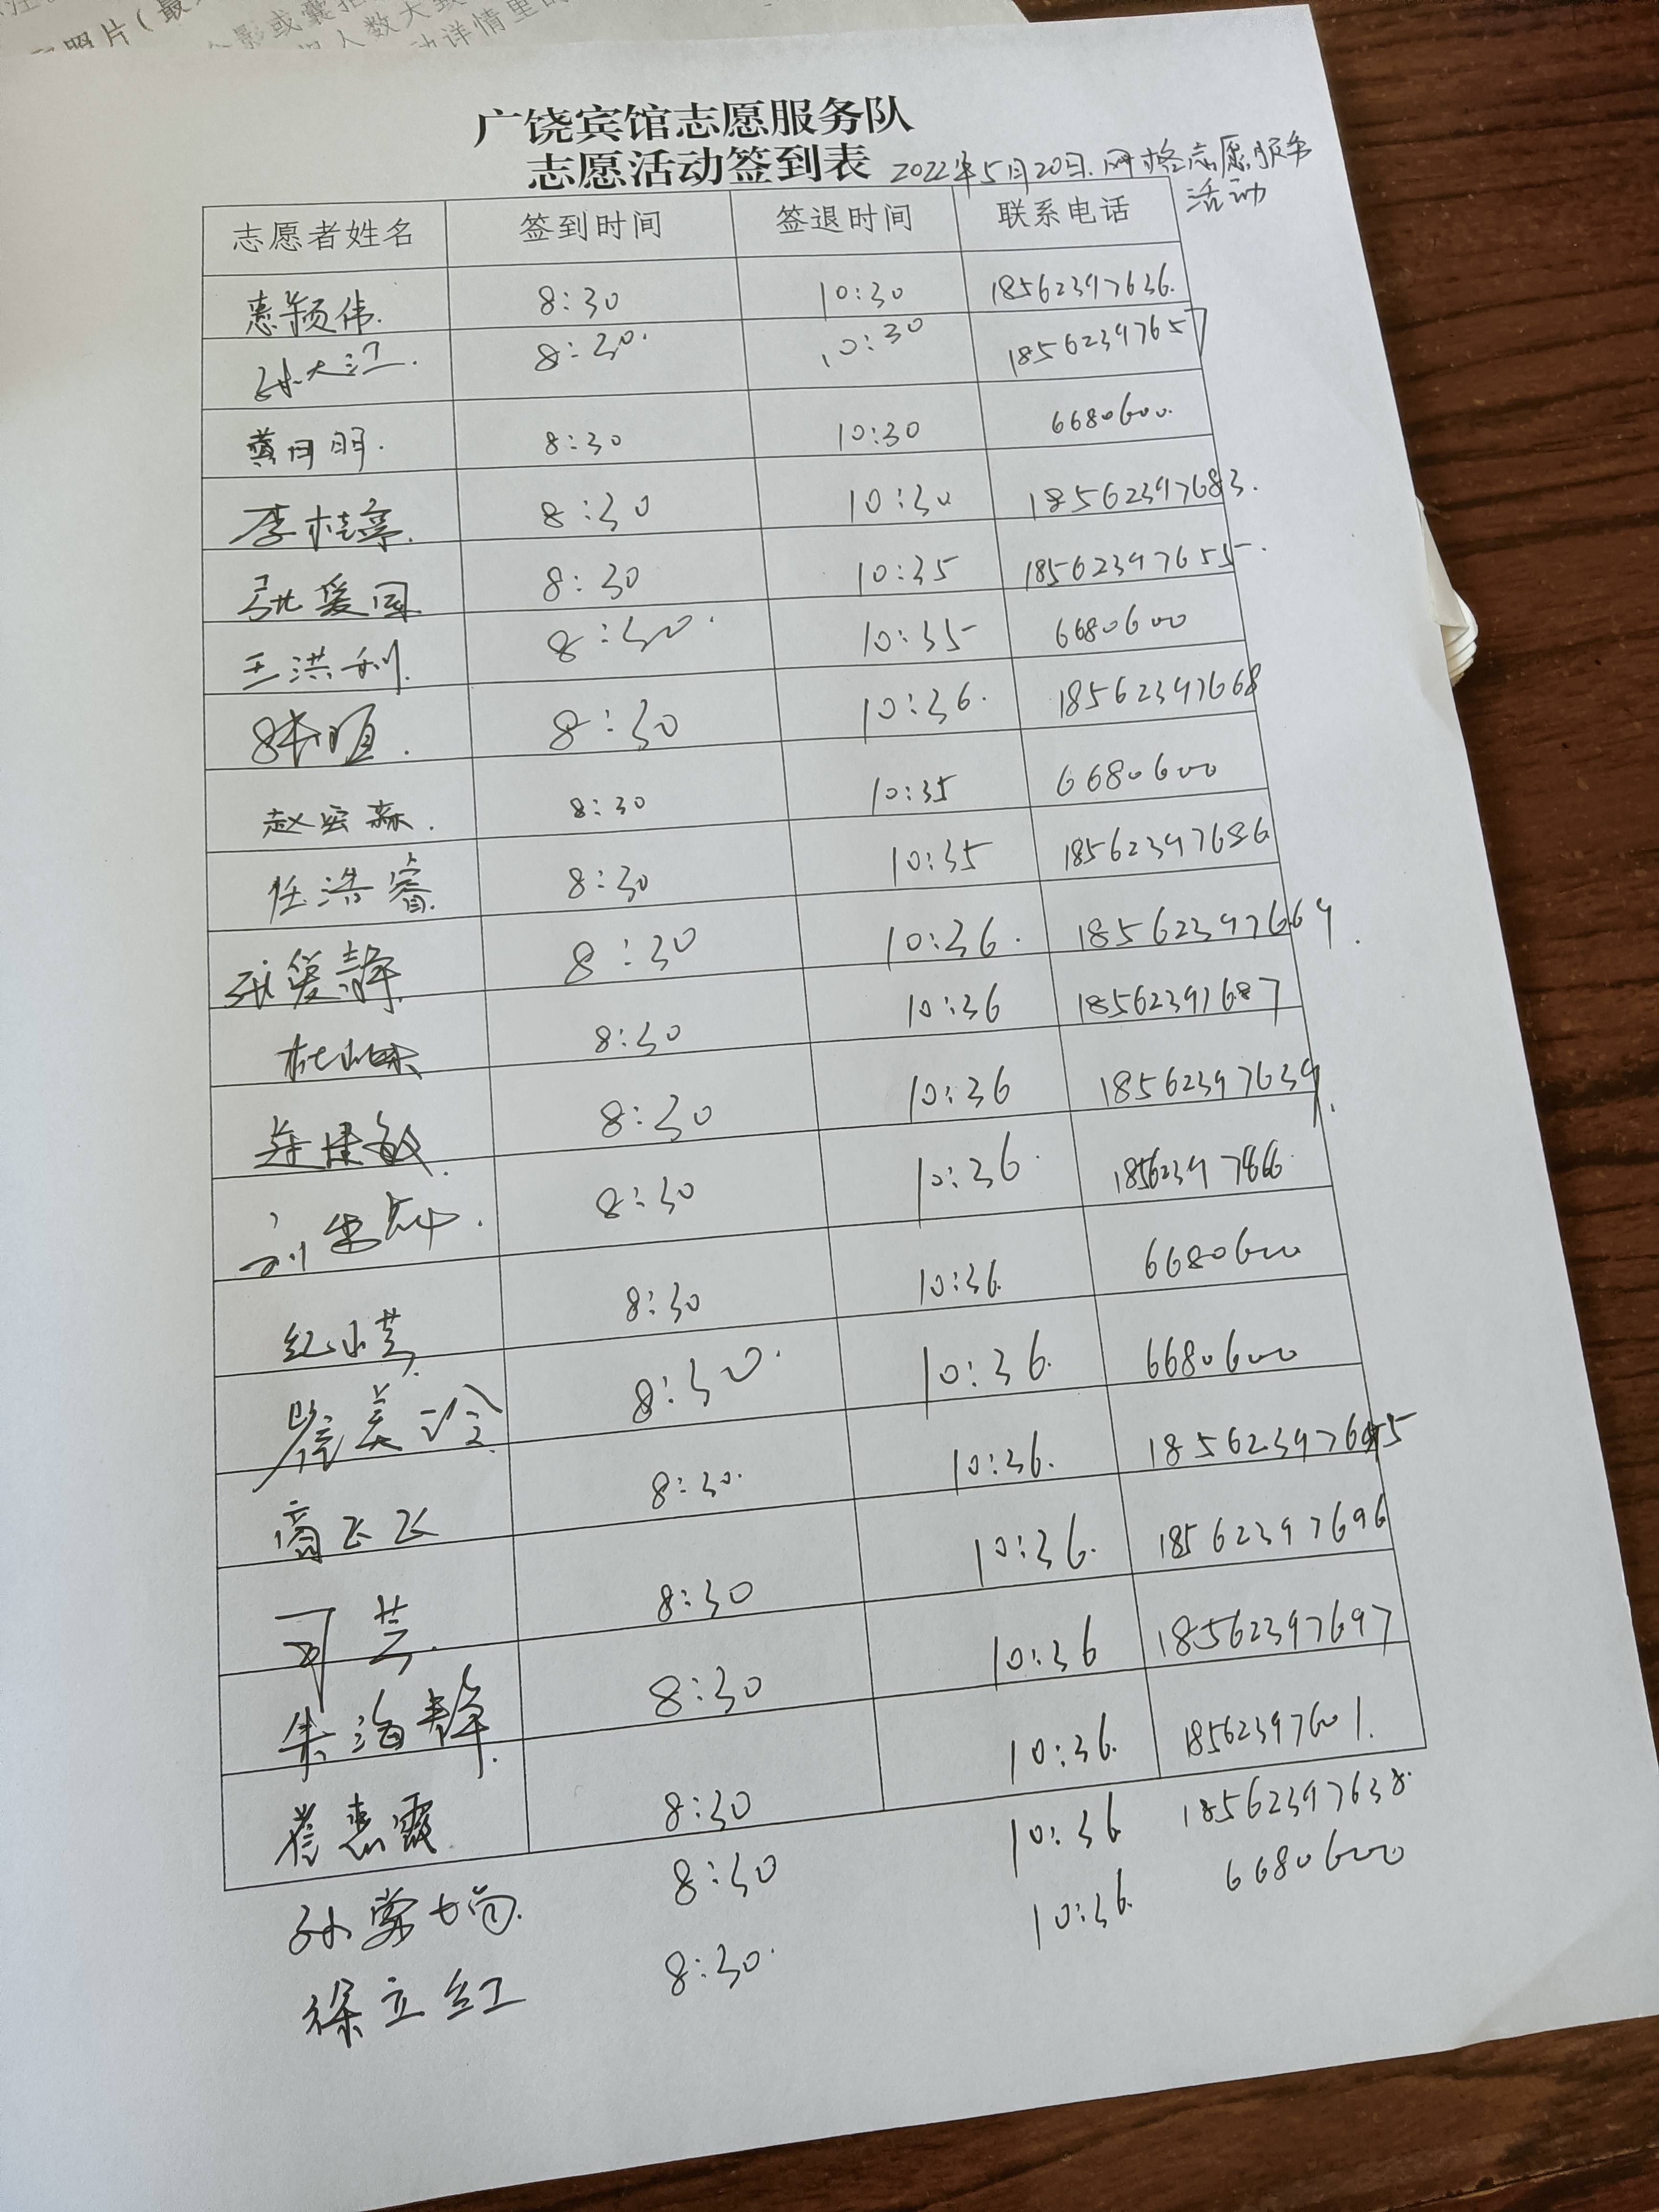 照片(最
影或囊括
人数大致
动详情里
广饶宾馆志愿服务队
志愿活动签到表 2022年5月20日.网格志愿服务
活动
志愿者姓名 签到时间 签退时间 联系电话
惠颖伟. 8:30 10:30 18562397636.
孙大江. 8:30. 10:30 18562397657
8:30 10:30 6680600.
李桂亭. 8:30 10:30 18562397683.
张爱国 8:30 10:35 18562397655.
王洪利. 8:30. 10:35 6680600
8:30 10:36. 18562397668
赵宏森. 8:30 10:35 6680600
任浩睿. 8:30 10:35 18562397686
张爱静. 8:30 10:36. 18562397669.
8:30 10:36 18562397687
8:30 10:36 18562397639.
8:30 10:36.
纪小芹 8:30 10:36. 6680600
崔美冷. 8:30. 10:36. 6680600
商飞飞 8:30. 10:36.
司芸. 8:30 10:36. 18562397696
朱海静. 8:30 10:36 18562397697
崔惠霞. 8:30 10:36. 18562397601.
8:30 10:36 18562397638.
徐立红 8:30. 10:36. 6680600